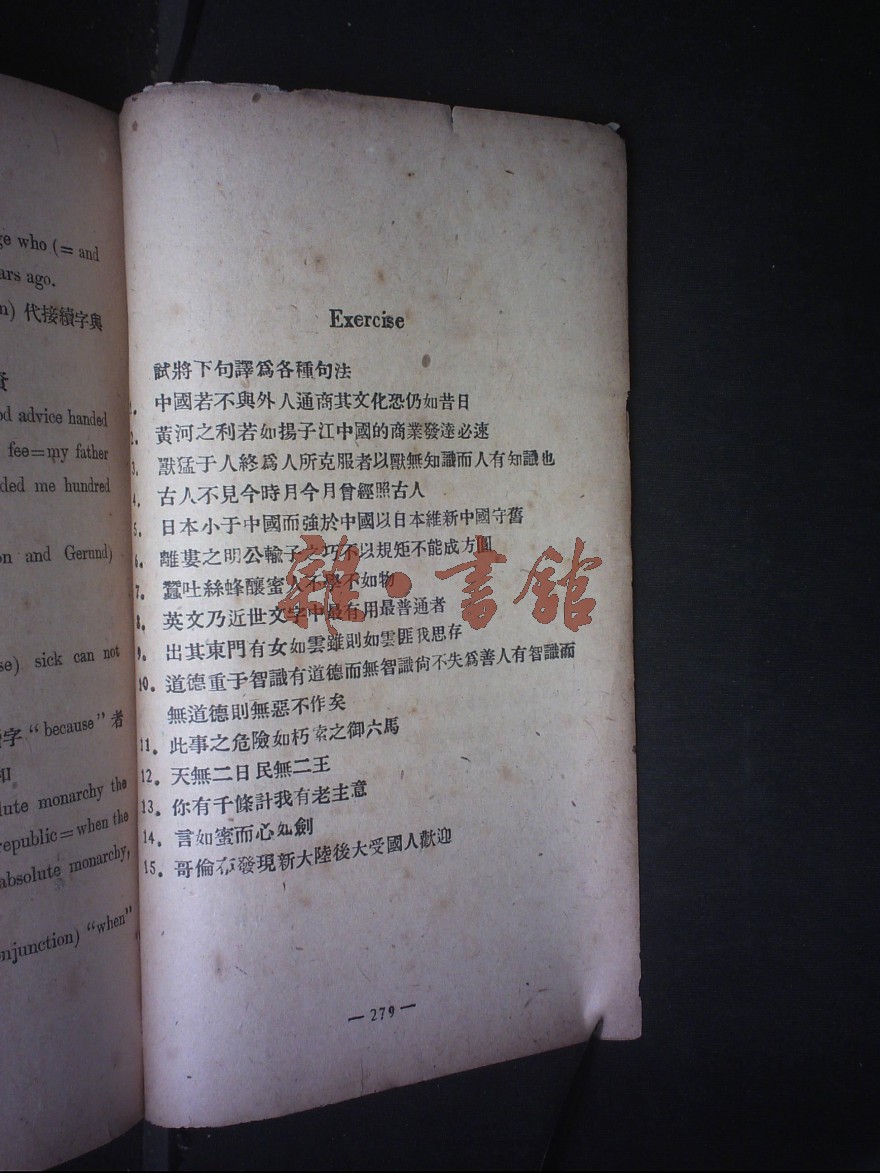 ge who (= and
ars ago.
n) 代接續字與
od advice handed
fee=my father
ded me hundred
on and Gerund)
se) sick can not
字 “because” 者
lute monarchy the
republic=when the
absolute monarchy,
njunction) “when”
Exercise
試將下句譯爲各種句法
1. 中國若不與外人通商其文化恐仍如昔日
2. 黃河之利若如揚子江中國的商業發達必速
3. 獸猛于人終爲人所克服者以獸無知識而人有知識也
4. 古人不見今時月今月曾經照古人
5. 日本小于中國而強於中國以日本維新中國守舊
6. 離婁之明公輸子之巧不以規矩不能成方圓
7. 蠶吐絲蜂釀蜜人不學不如物
8. 英文乃近世文字中最有用最普通者
9. 出其東門有女如雲雖則如雲匪我思存
10. 道德重于智識有道德而無智識尙不失爲善人有智識而
無道德則無惡不作矣
11. 此事之危險如朽索之御六馬
12. 天無二日民無二王
13. 你有千條計我有老主意
14. 言如蜜而心如劍
15. 哥倫布發現新大陸後大受國人歡迎
— 279 —
雜·書館